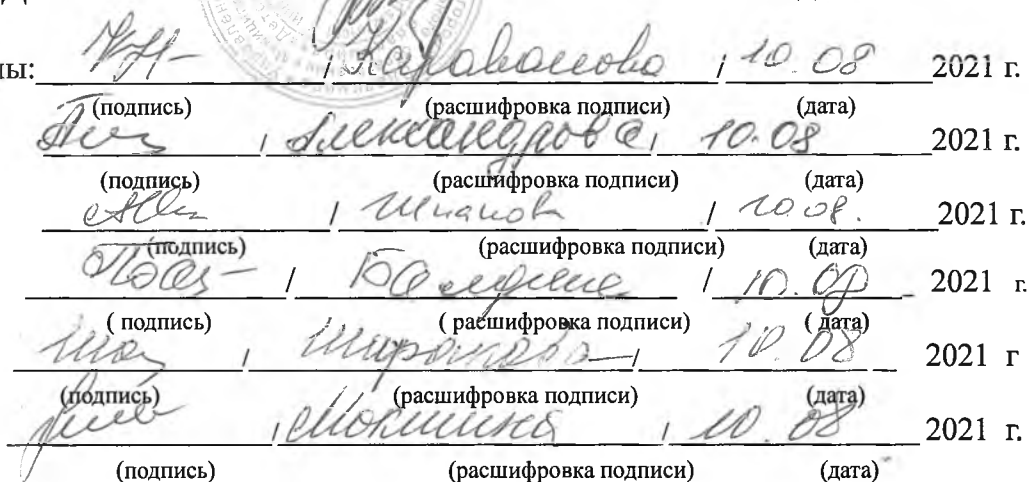 ны: / Караванова / 10.08 2021 г.
(подпись) (расшифровка подписи) (дата)
/ Александрова / 10.08 2021 г.
(подпись) (расшифровка подписи) (дата)
/ Шпанова / 10.08. 2021 г.
(подпись) (расшифровка подписи) (дата)
/ / 10.08 2021 г.
( подпись) ( расшифровка подписи) ( дата)
/ / 10.08 2021 г
(подпись) (расшифровка подписи) (дата)
/ Мокшина / 10.08 2021 г.
(подпись) (расшифровка подписи) (дата)